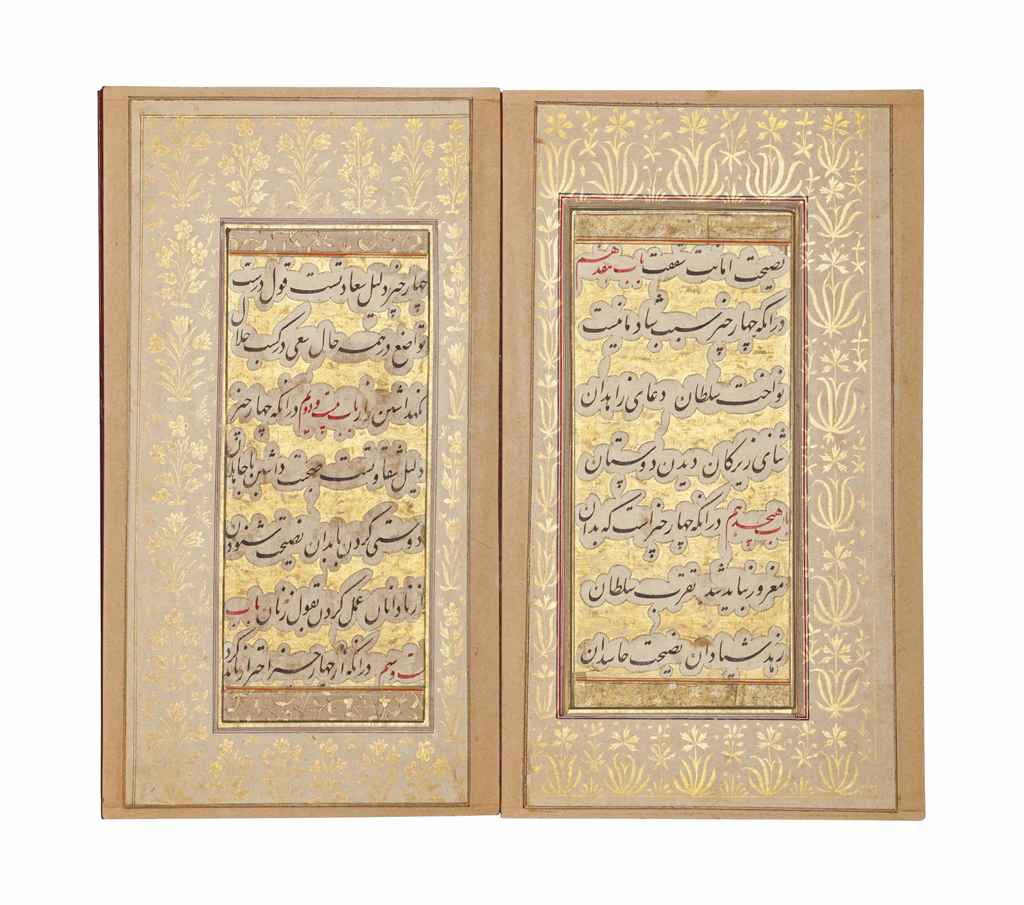 نصیحت امانت شفقت باب هفدهم
در انکه چهار چیز سبب شادمانیست
نواخت سلطان دعای زاهدان
ثنای زیرکان دیدن دوستان
باب هیجدهم در انکه چهار چیز است که بدان
مغرور نباید شد تقرب سلطان
زهد شیادان نصیحت حاسدان
چهار چیز دلیل سعادتست قول درست
تواضع در همه حال سعی در کسب حلال
نکهداشتن راز باب بیست و دویم در انکه چهار چیز
دلیل شقاوتست صحبت داشتن با جاهلان
دوستی کردن با بدان نصیحت شنودن
از نادانان عمل کردن بقول زنان باب
بیست و سیم در انکه از چهار چیز احتراز باید کرد